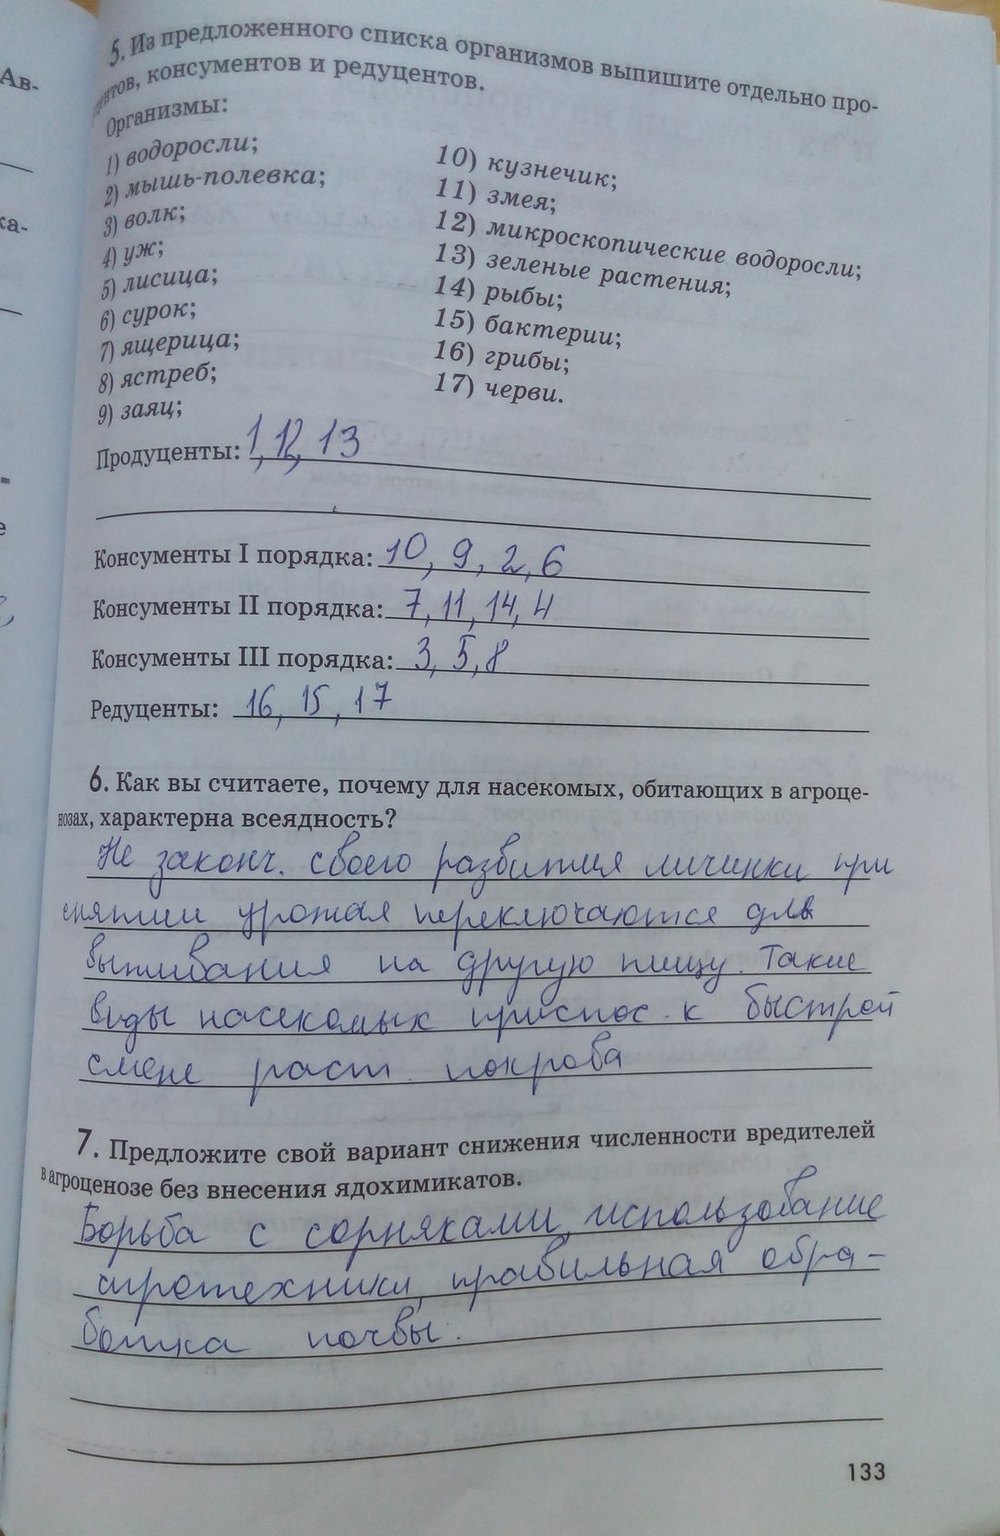 5. Из предложенного списка организмов выпишите отдельно про-
дуцентов, консументов и редуцентов.
Организмы:
1) водоросли;
2) мышь-полевка;
3) волк;
4) уж;
5) лисица;
6) сурок;
7) ящерица;
8) ястреб;
9) заяц;
10) кузнечик;
11) змея;
12) микроскопические водоросли;
13) зеленые растения;
14) рыбы;
15) бактерии;
16) грибы;
17) черви.
Продуценты: 1, 12, 13
Консументы I порядка: 10, 9, 2, 6
Консументы II порядка: 7, 11, 14, 4
Консументы III порядка: 3, 5, 8
Редуценты: 16, 15, 17
6. Как вы считаете, почему для насекомых, обитающих в агроце-
нозах, характерна всеядность?
Не законч. своего развития личинки при
снятии урожая переключаются для
выживания на другую пищу. Такие
виды насекомых приспос. к быстрой
смене раст. покрова
7. Предложите свой вариант снижения численности вредителей
в агроценозе без внесения ядохимикатов.
Борьба с сорняками, использование
агротехники, правильная обра-
ботка почвы.
133
Ав-
ка-
е